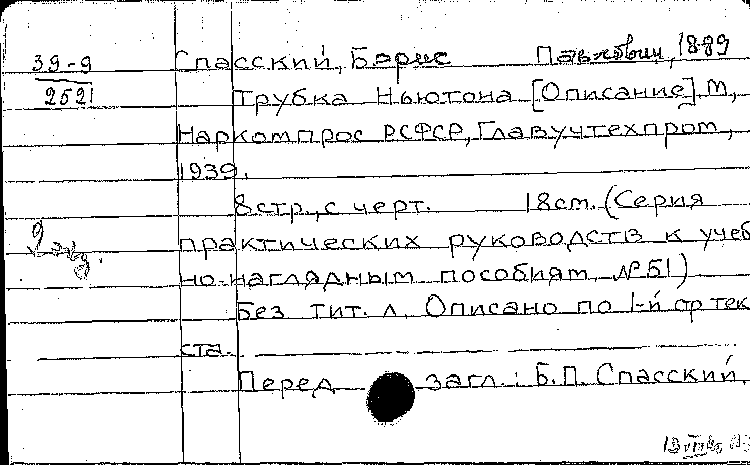 39-9
252
Спасский, Борис Павлович, 1889
Трубка Ньютона [Описание]. М,
Наркомпрос РСФСР, Главучтехпром,
1939.
8стр., с черт. 18см. (Серия
2 экз.
практических руководств к учеб
но-наглядным пособиям, № 51)
Без тит. л. Описано по 1-й стр тек
ста.
Перед загл.: Б.П. Спасский.